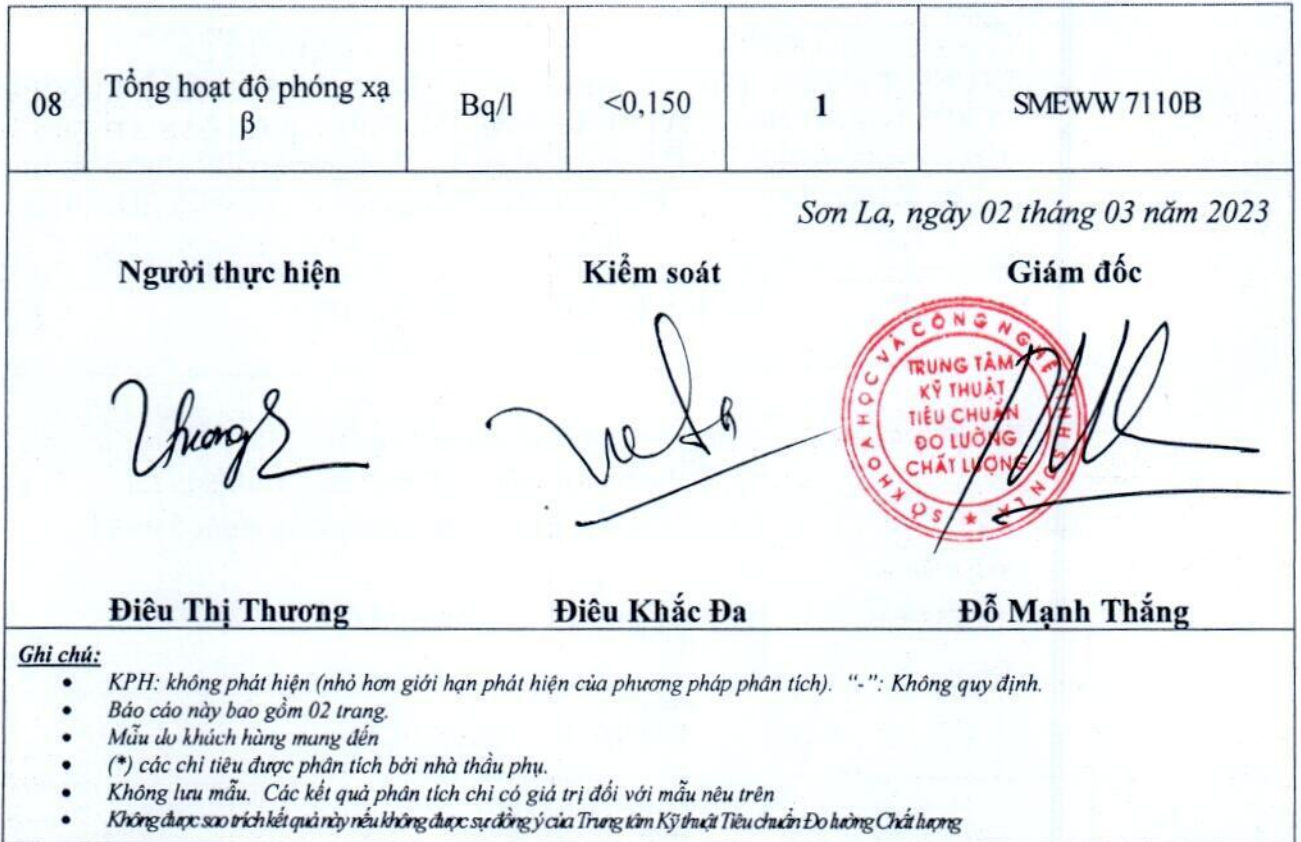 08 Tổng hoạt độ phóng xạ β Bq/l <0,150 1 SMEWW 7110B
Sơn La, ngày 02 tháng 03 năm 2023
Người thực hiện Kiểm soát Giám đốc
SỞ KHOA HỌC VÀ CÔNG NGHỆ TỈNH SƠN LA
TRUNG TÂM
KỸ THUẬT
TIÊU CHUẨN
ĐO LƯỜNG
CHẤT LƯỢNG
Thương
Điêu Thị Thương Điêu Khắc Đa Đỗ Mạnh Thắng
Ghi chú:
• KPH: không phát hiện (nhỏ hơn giới hạn phát hiện của phương pháp phân tích). "-": Không quy định.
• Báo cáo này bao gồm 02 trang.
• Mẫu do khách hàng mang đến
• (*) các chỉ tiêu được phân tích bởi nhà thầu phụ.
• Không lưu mẫu. Các kết quả phân tích chỉ có giá trị đối với mẫu nêu trên
• Không được sao trích kết quả này nếu không được sự đồng ý của Trung tâm Kỹ thuật Tiêu chuẩn Đo lường Chất lượng